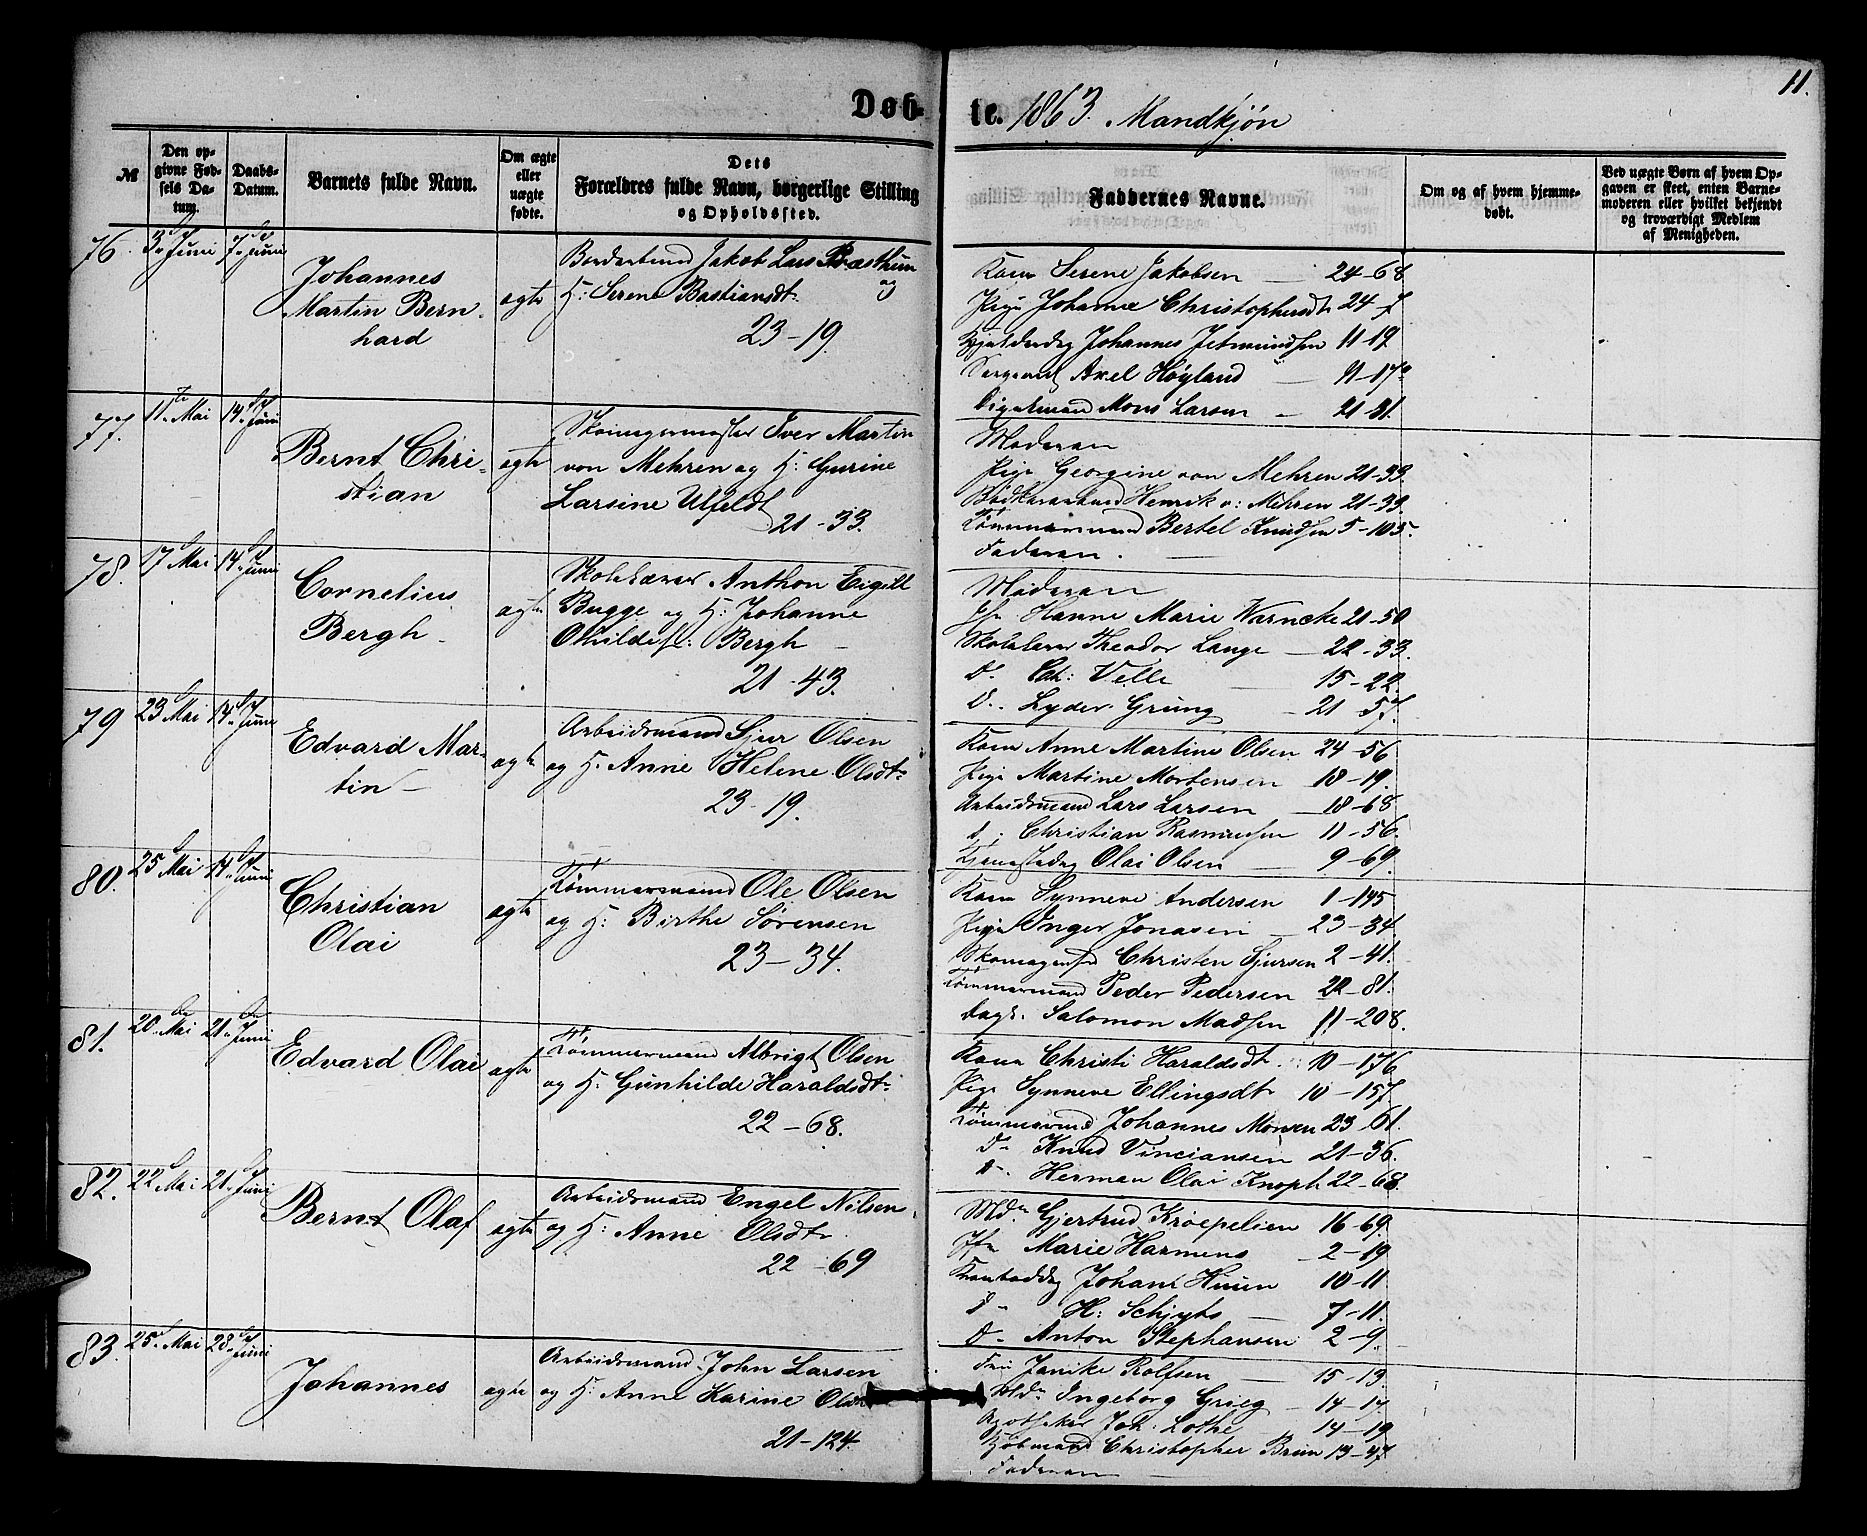 11.
Døb-
te. 1863. Mandkjøn
№
Den op-
givne Fød-
sels Da-
tum.
Daabs-
Datum.
Barnets fulde Navn.
Om ægte
eller
uægte
fødte.
Dets
Forældres fulde Navn, borgerlige Stilling
og Opholdssted.
Faddernes Navne.
Om og af hvem hjemme-
døbt.
Ved uægte Børn af hvem Op-
gaven er skeet, enten Barne-
moderen eller hvilket bekjendt
og troværdigt Medlem
af Menigheden.
76. 3 Juni 7 Juni
Johannes
Martin Bern-
hard
ægte
Jakob Lars
og
K: Serene Bastiansdt.
23-19.
Kone Serene Jakobsen 24-68
Pige Johanne Christophersdt 24-7
Johannes 11-19
Sergeant Axel Høyland 11-17
Mons Larsen 21-31.
77. 11 Mai 14 Juni
Bernt Chri-
stian
ægte
Skomagermester Iver Martin
von Mehren og K: Gurine
Larsine Ulfeldt
21-33.
Moderen
Pige Georgine von Mehren 21-33
Henrik v: Mehren 21-33
Tømmermand Bertel Knudsen 5-105.
Faderen.
78. 17 Mai 14 Juni
Cornelius
Bergh
ægte
Skolelærer Anthon Eigill
Bugge og K: Johanne
Bergh
21-43.
Moderen
Jfr Hanne Marie Warncke 21-50
Skolelærer Theodor Lange 22-33.
Do Velle 15-22.
Do Lyder Grung 21-57.
79 23 Mai 14 Juni
Edvard Mar-
tin
ægte
Arbeidsmand Sjur Olsen
og K. Anne Helene Olsdt
23-19.
Kone Anne Martine Olsen 24-56
Pige Martine Mortensen 18-19.
Arbeidsmand Lars Larsen 18-68
d. Christian Rasmussen 11-56.
Olai Olsen 9-69.
80. 25 Mai 14 Juni
Christian
Olai
ægte
Tømmermand Ole Olsen
og K: Birthe Sørensen
23-34.
Kone Synneve Andersen 1-195
Pige Inger Jonasen 23-34.
Christen Sjursen 2-41.
Tømmermand Peder Pedersen 22-81.
Salomon Madsen 11-208.
81. 20 Mai 21 Juni
Edvard Olai
ægte
Tømmermand Albrigt Olsen
og K: Gunhilde Haraldsdt
22-68.
Kone Christi Haraldsdt. 10-176
Pige Synneve Ellingsdt 10-157
Tømmermand Johannes Monsen 23-61.
Do Knud Vinciansen 21-36.
D. Herman Olai Knoph 22-68.
82. 22 Mai 21 Juni
Bernt Olaf
ægte
Arbeidsmand Engel Nilsen
og K: Anne Olsdt
22-69
Md. Gjertrud Krøepelien 16-69.
Jfr Marie Harmens 2-19
Johan 10-11
D H: 7-11.
D. Anton Stephansen 2-9.
83. 25 Mai 28 Juni
Johannes
ægte
Arbeidsmand John Larsen
og K. Anne Karine
21-124.
Janike Rolfsen 15-13
Md. Ingeborg Grieg 14-17.
Apotheker Joh. Lothe 14-19
Kjøbmand Christopher Brun 13-47
Faderen